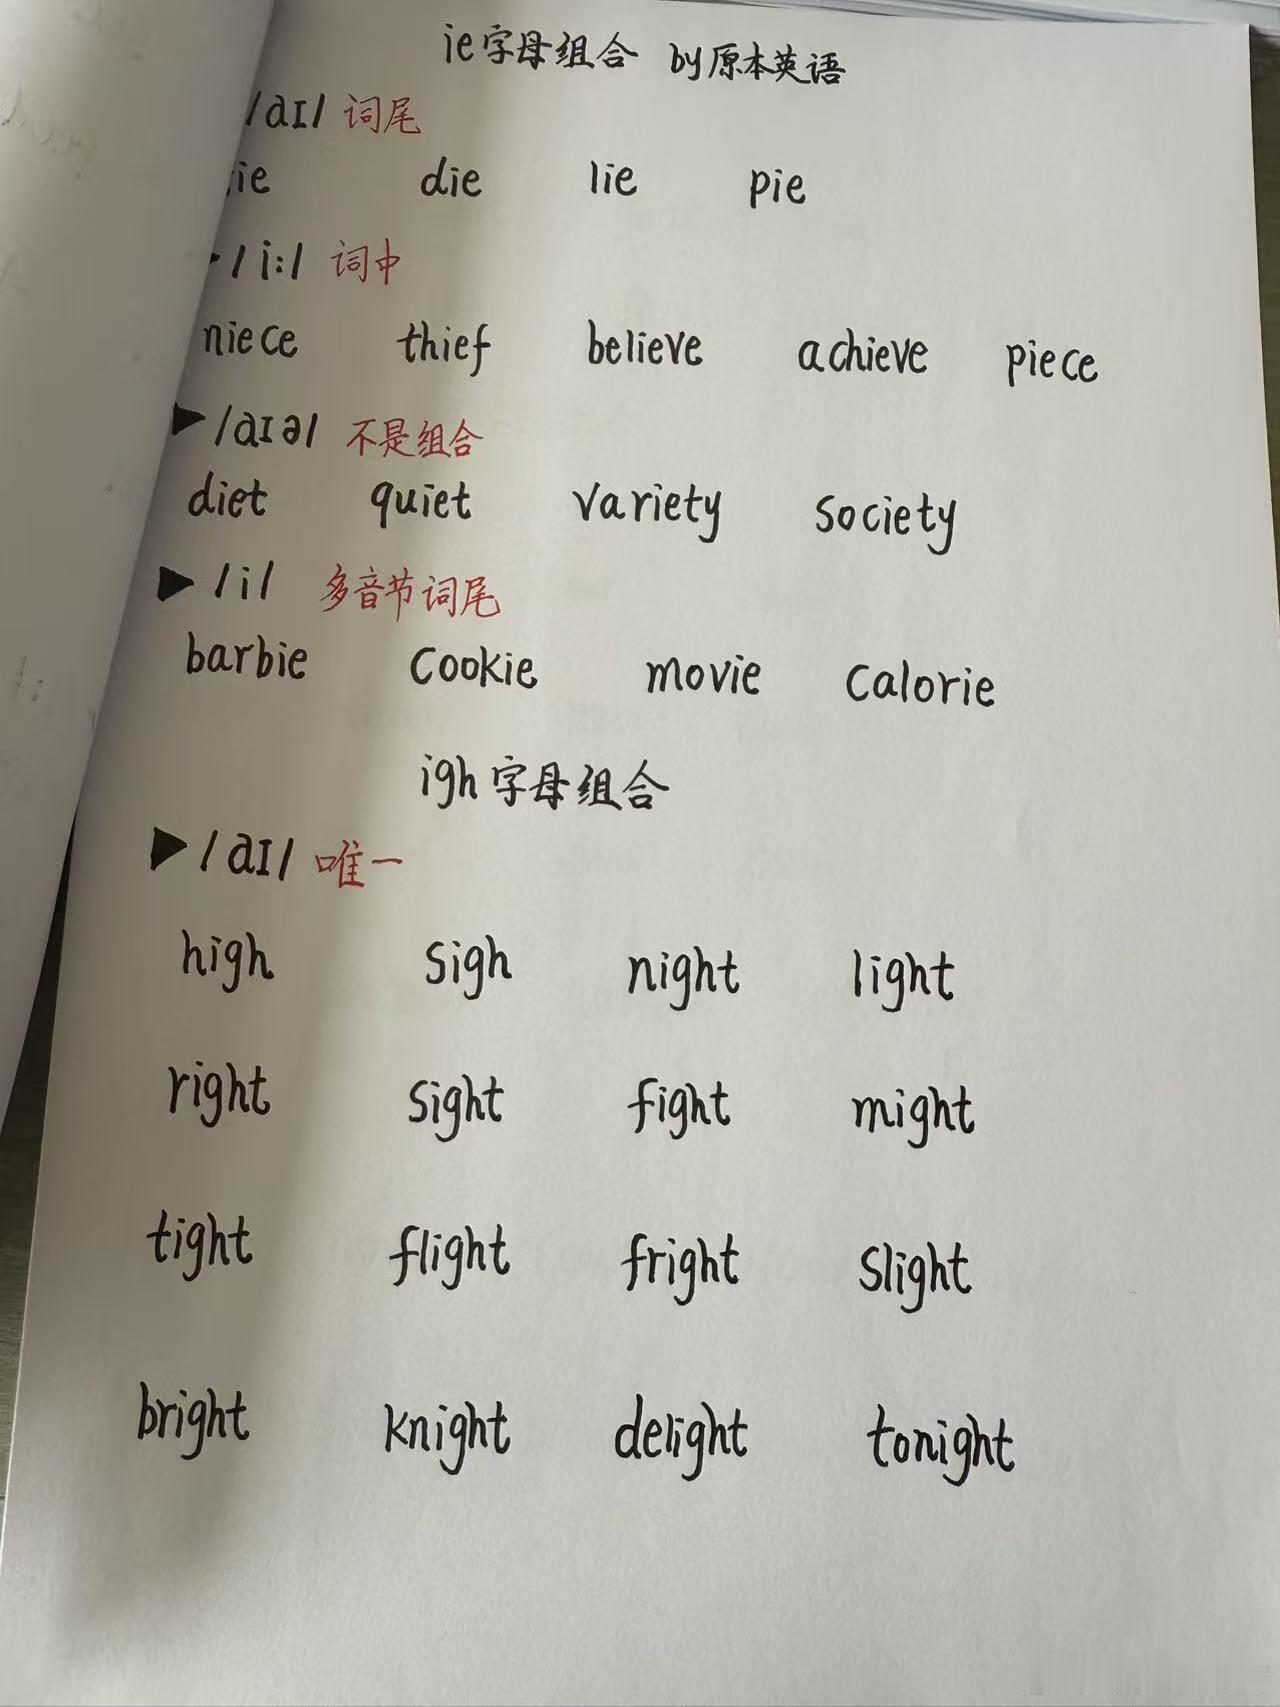 ie字母组合 by原本英语
/aɪ/ 词尾
die lie pie
/i:/ 词中
niece thief believe achieve piece
▶ /aɪə/ 不是组合
diet quiet variety society
▶ /i/ 多音节词尾
barbie cookie movie calorie
igh字母组合
▶ /aɪ/ 唯一
high sigh night light
right sight fight might
tight flight fright slight
bright knight delight tonight